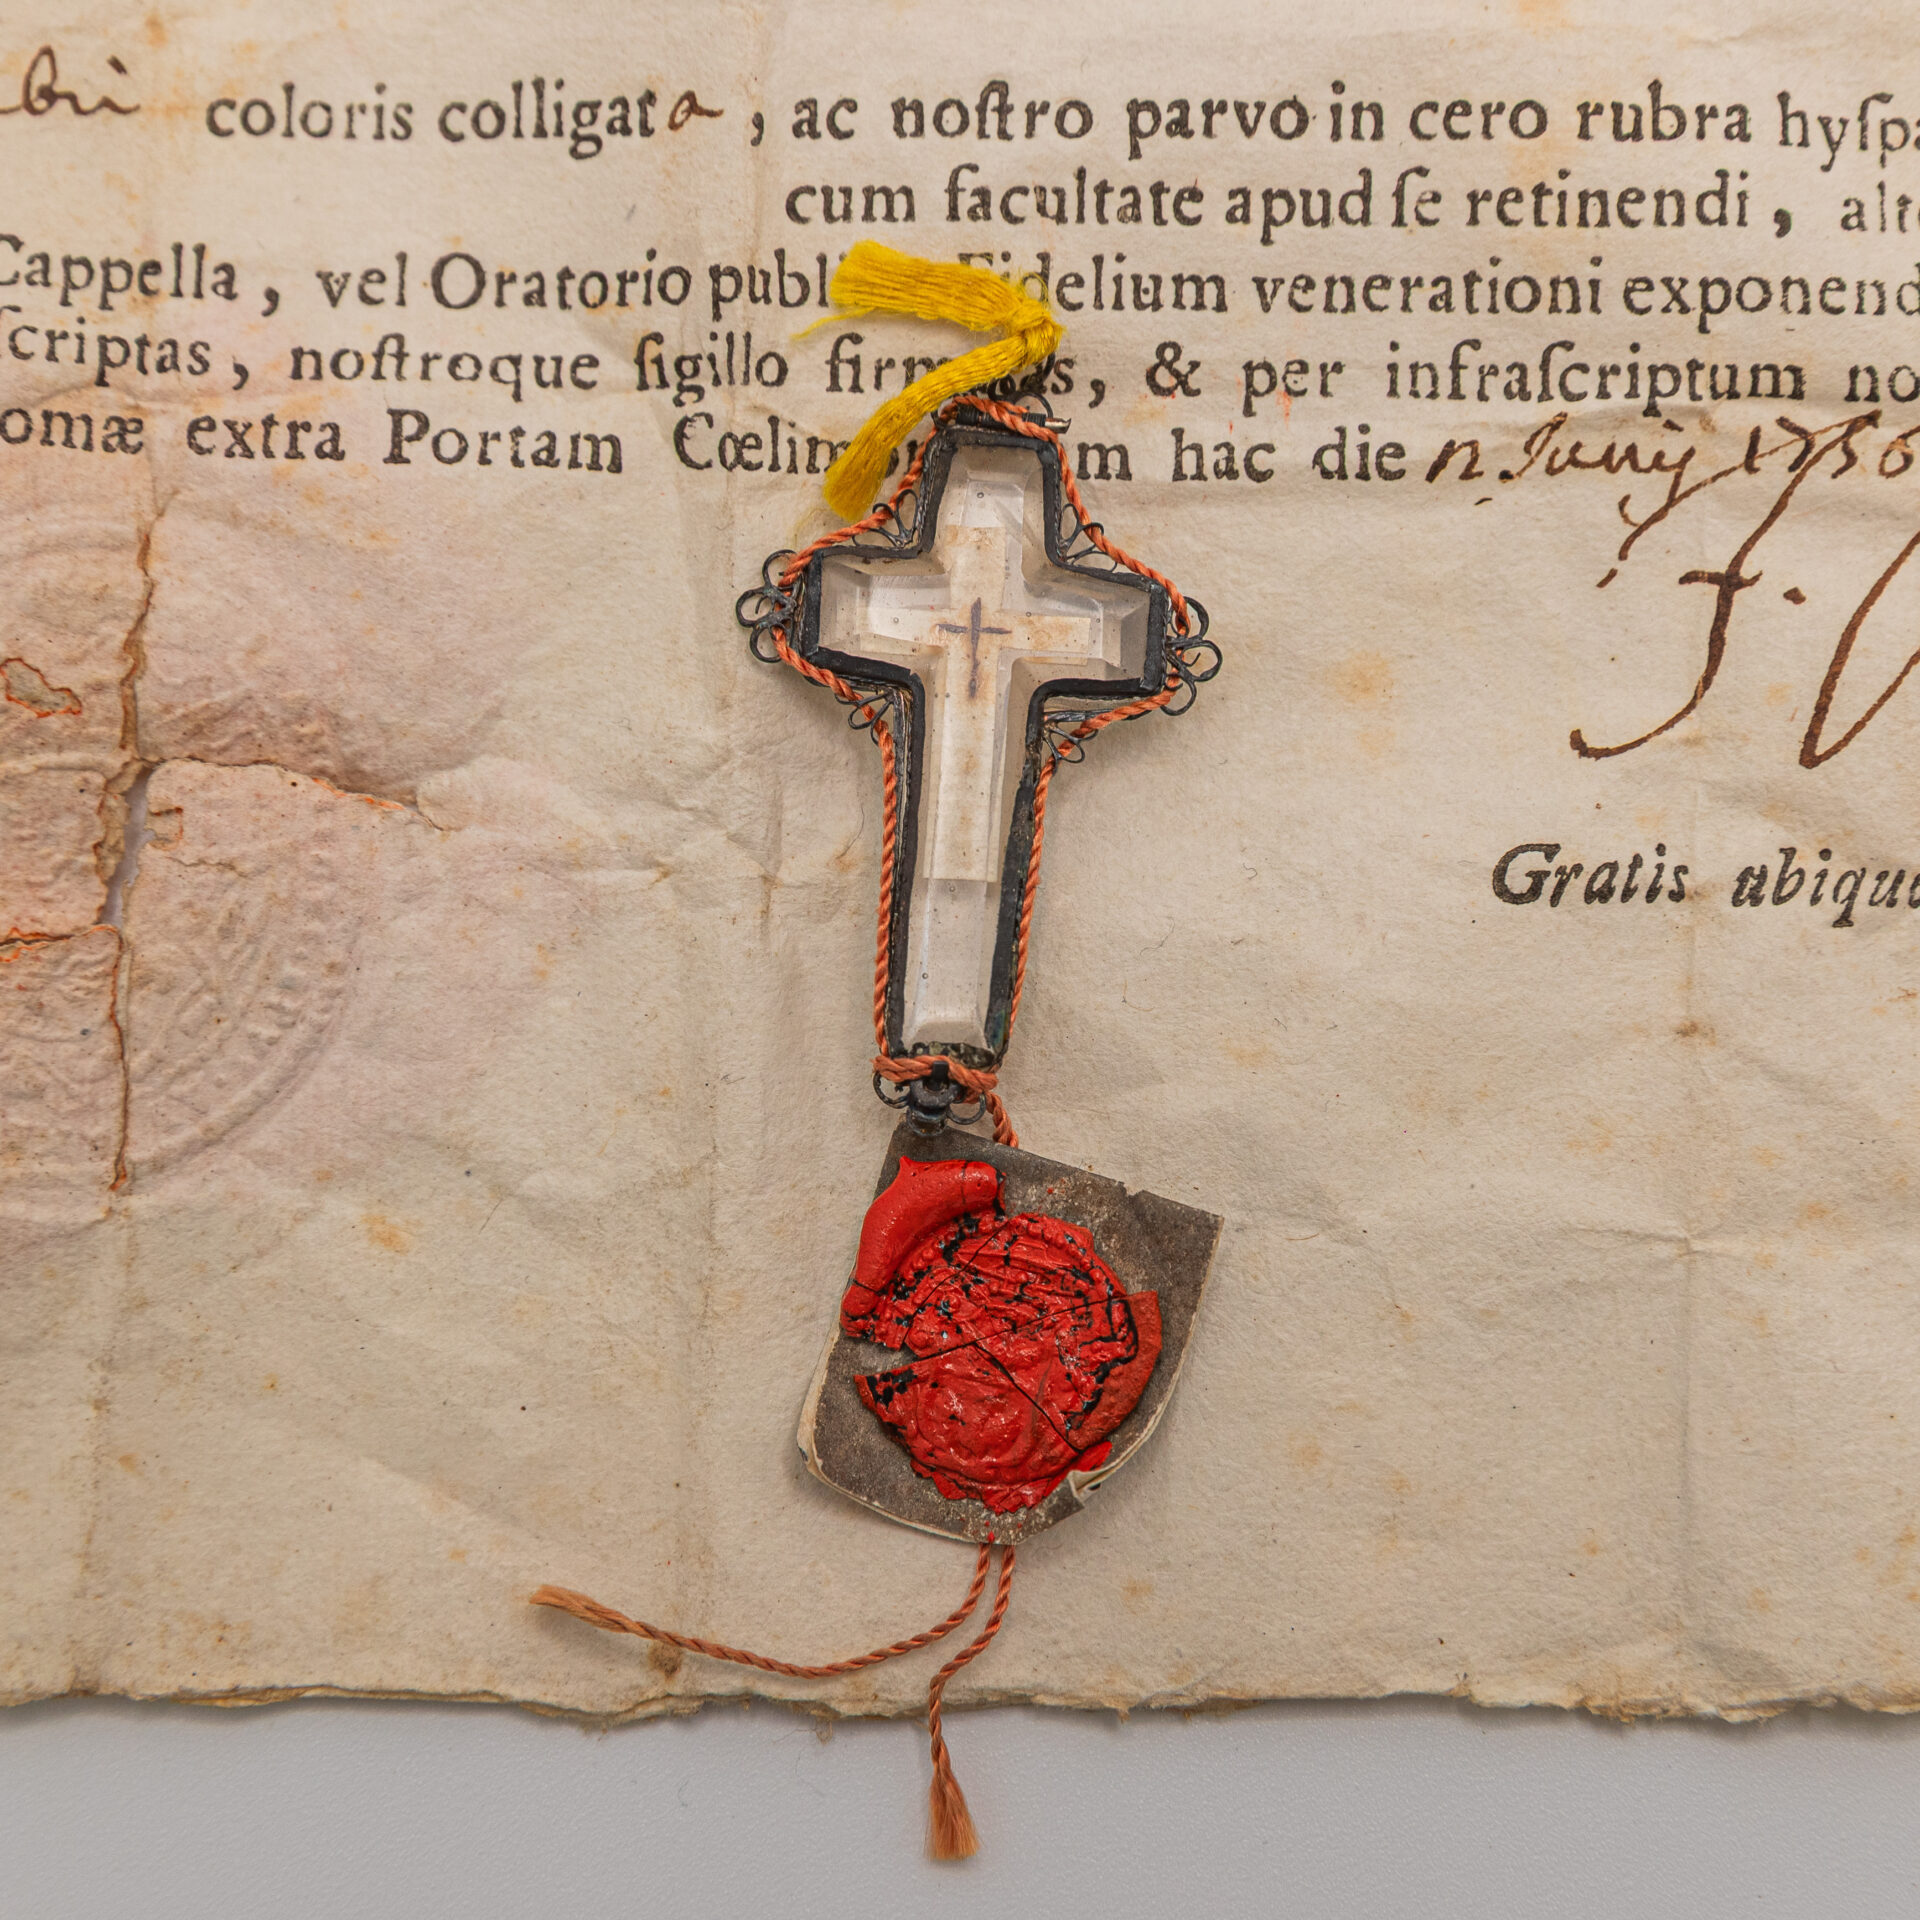 bri coloris colligata, ac noſtro parvo in cero rubra hyſpa
cum facultate apud ſe retinendi, alte
Cappella, vel Oratorio publi Fidelium venerationi exponend
ſcriptas, noſtroque ſigillo firmatas, & per infraſcriptum no
omæ extra Portam Cœlimontanam hac die 12 Junij 1756
F.
Gratis ubique